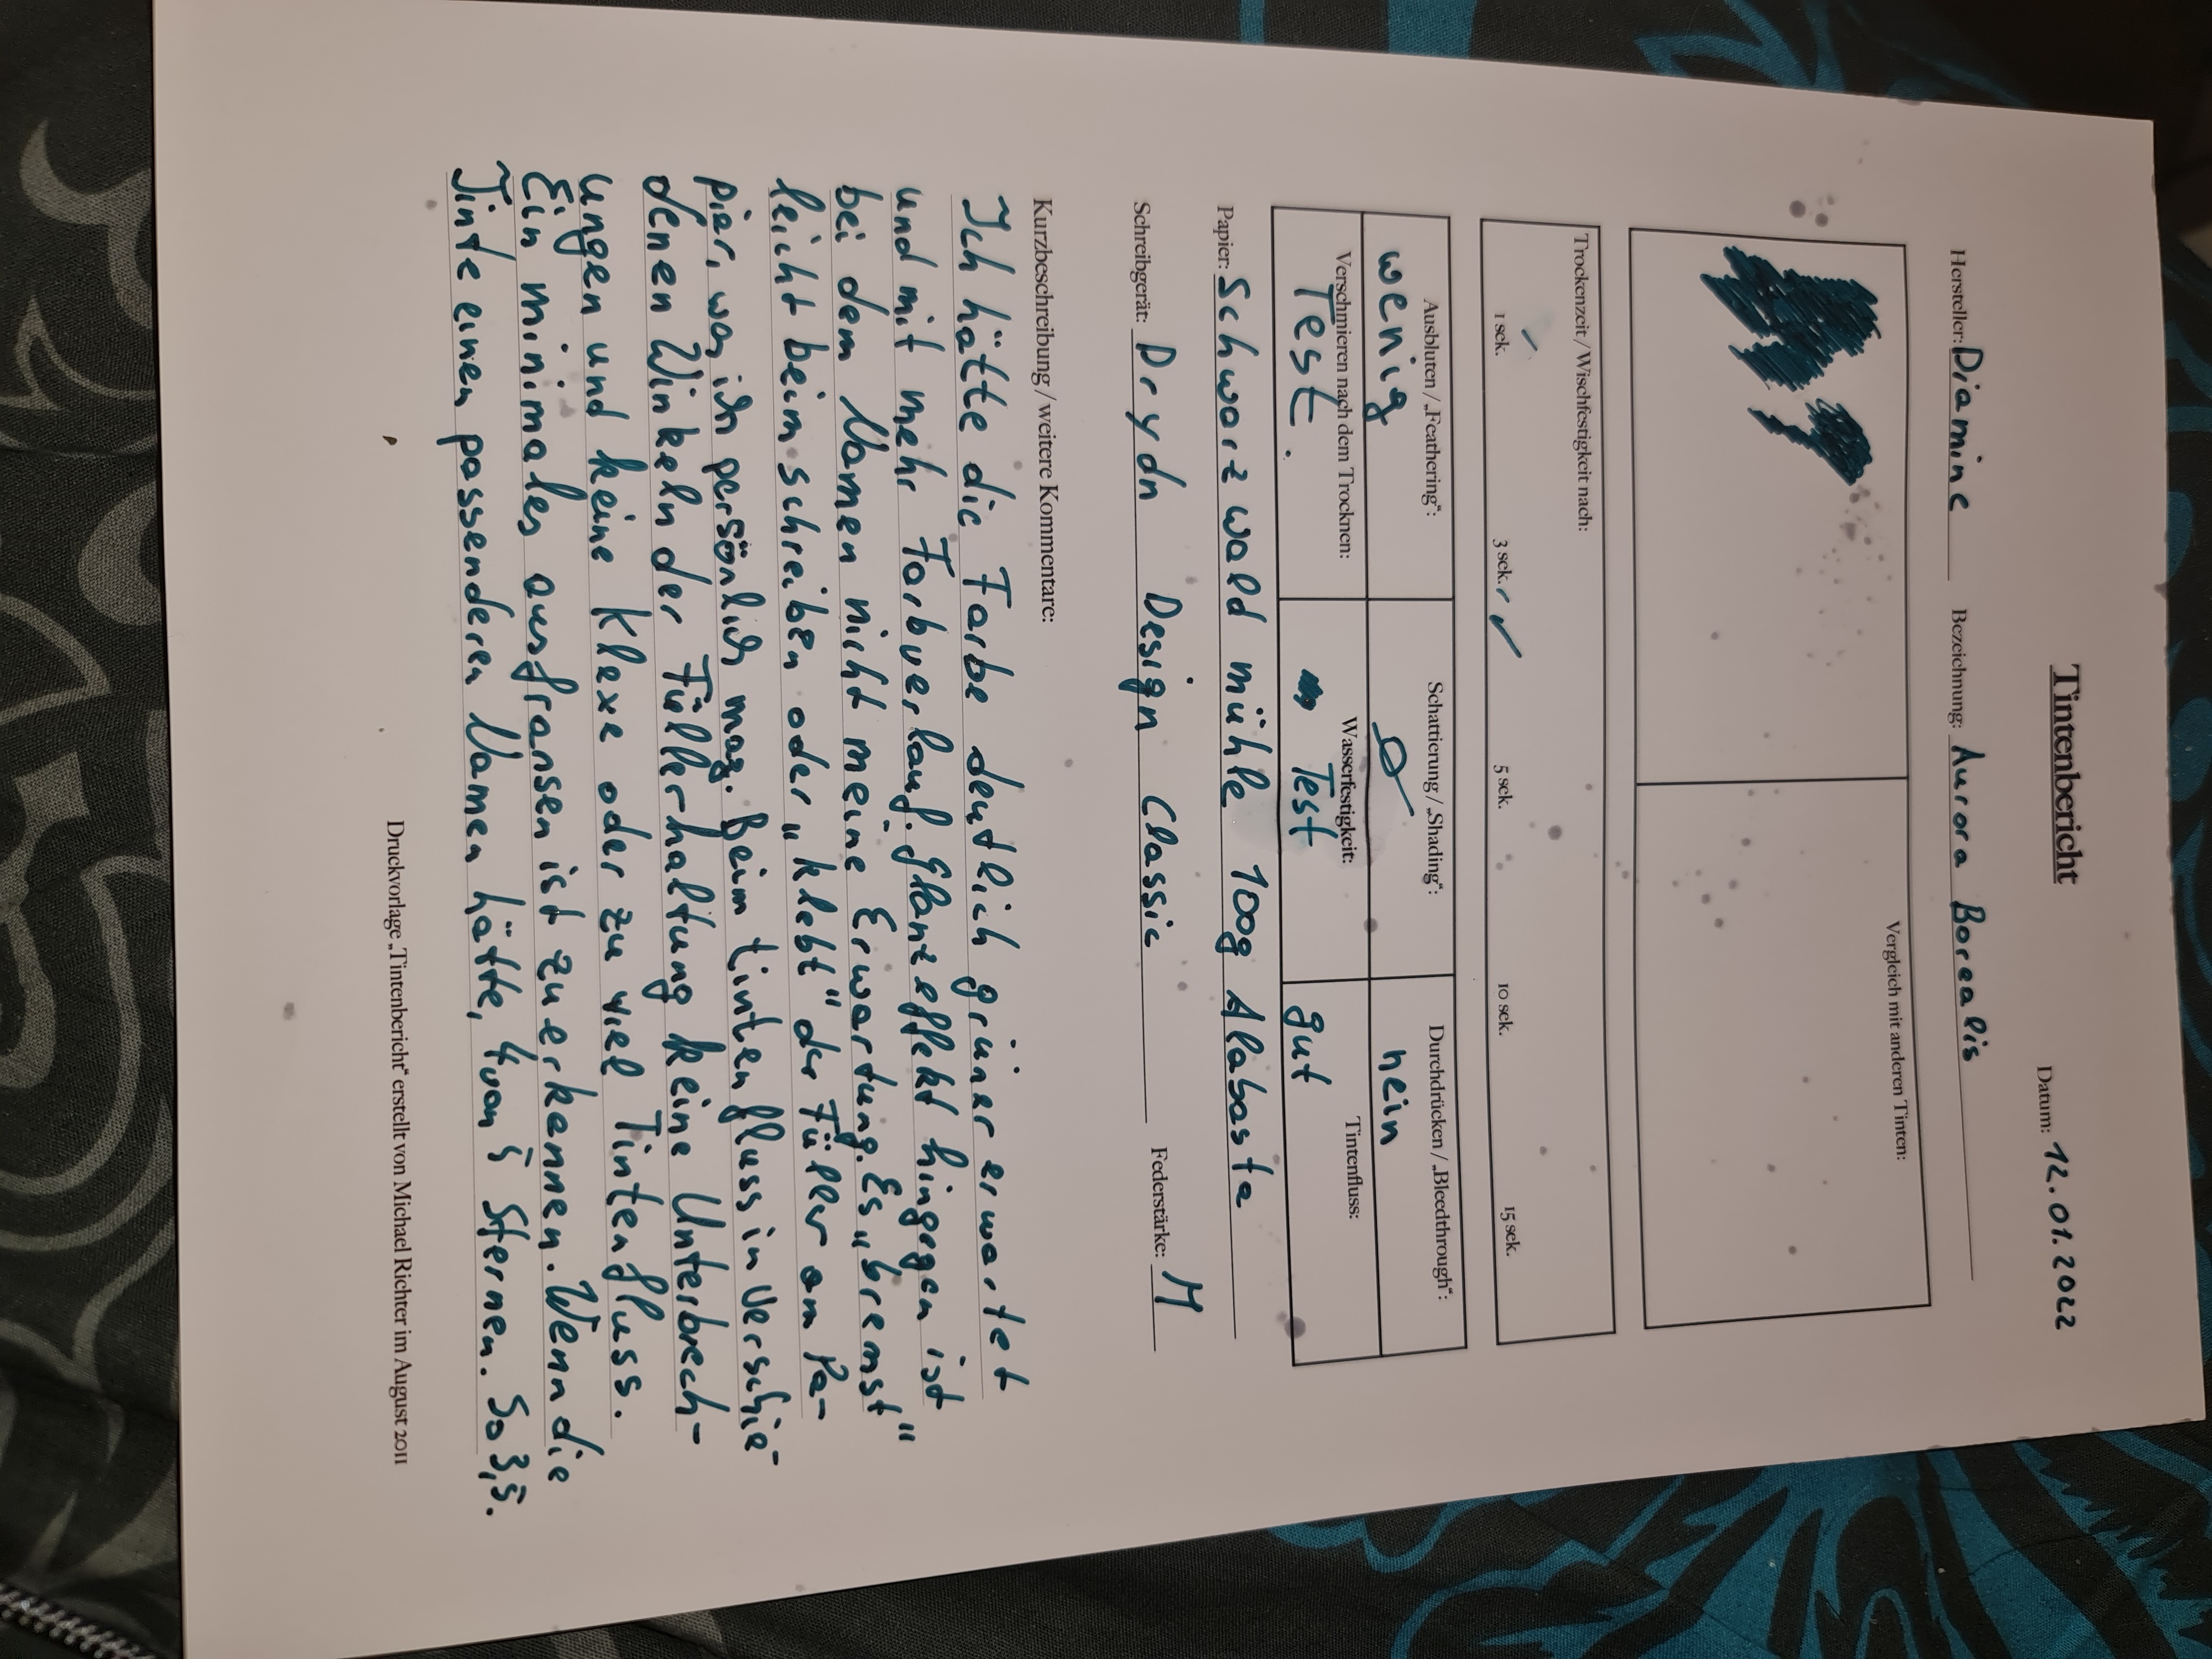 Tintenbericht
Datum: 12.01.2022
Hersteller: Diamine Bezeichnung: Aurora Borealis
Vergleich mit anderen Tinten:
Trockenzeit / Wischfestigkeit nach:
1 sek. 3 sek. 5 sek. 10 sek. 15 sek.
Ausbluten / „Feathering“: Schattierung / „Shading“: Durchdrücken / „Bleedthrough“:
wenig Ø nein
Verschmieren nach dem Trocknen: Wasserfestigkeit: Tintenfluss:
Test. Test gut
Papier: Schwarzwald mühle 100g Alabasta
Schreibgerät: Drydn Design Classic Federstärke: M
Kurzbeschreibung / weitere Kommentare:
Ich hätte die Farbe deutlich grüner erwartet
und mit mehr Farbverlauf. Glanzeffekt hingegen ist
bei dem Namen nicht meine Erwartung. Es „bremst“
leicht beim schreiben oder „klebt“ der Füller am Pa-
pier, was ich persönlich mag. Beim tintenfluss in verschie-
denen Winkeln der Füllerhaltung keine Unterbrech-
ungen und keine Klexe oder zu viel Tintenfluss.
Ein minimales ausfransen ist zu erkennen. Wenn die
Tinte einen passenderen Namen hätte, 4 von 5 Sternen. So 3,5.
Druckvorlage „Tintenbericht“ erstellt von Michael Richter im August 2011